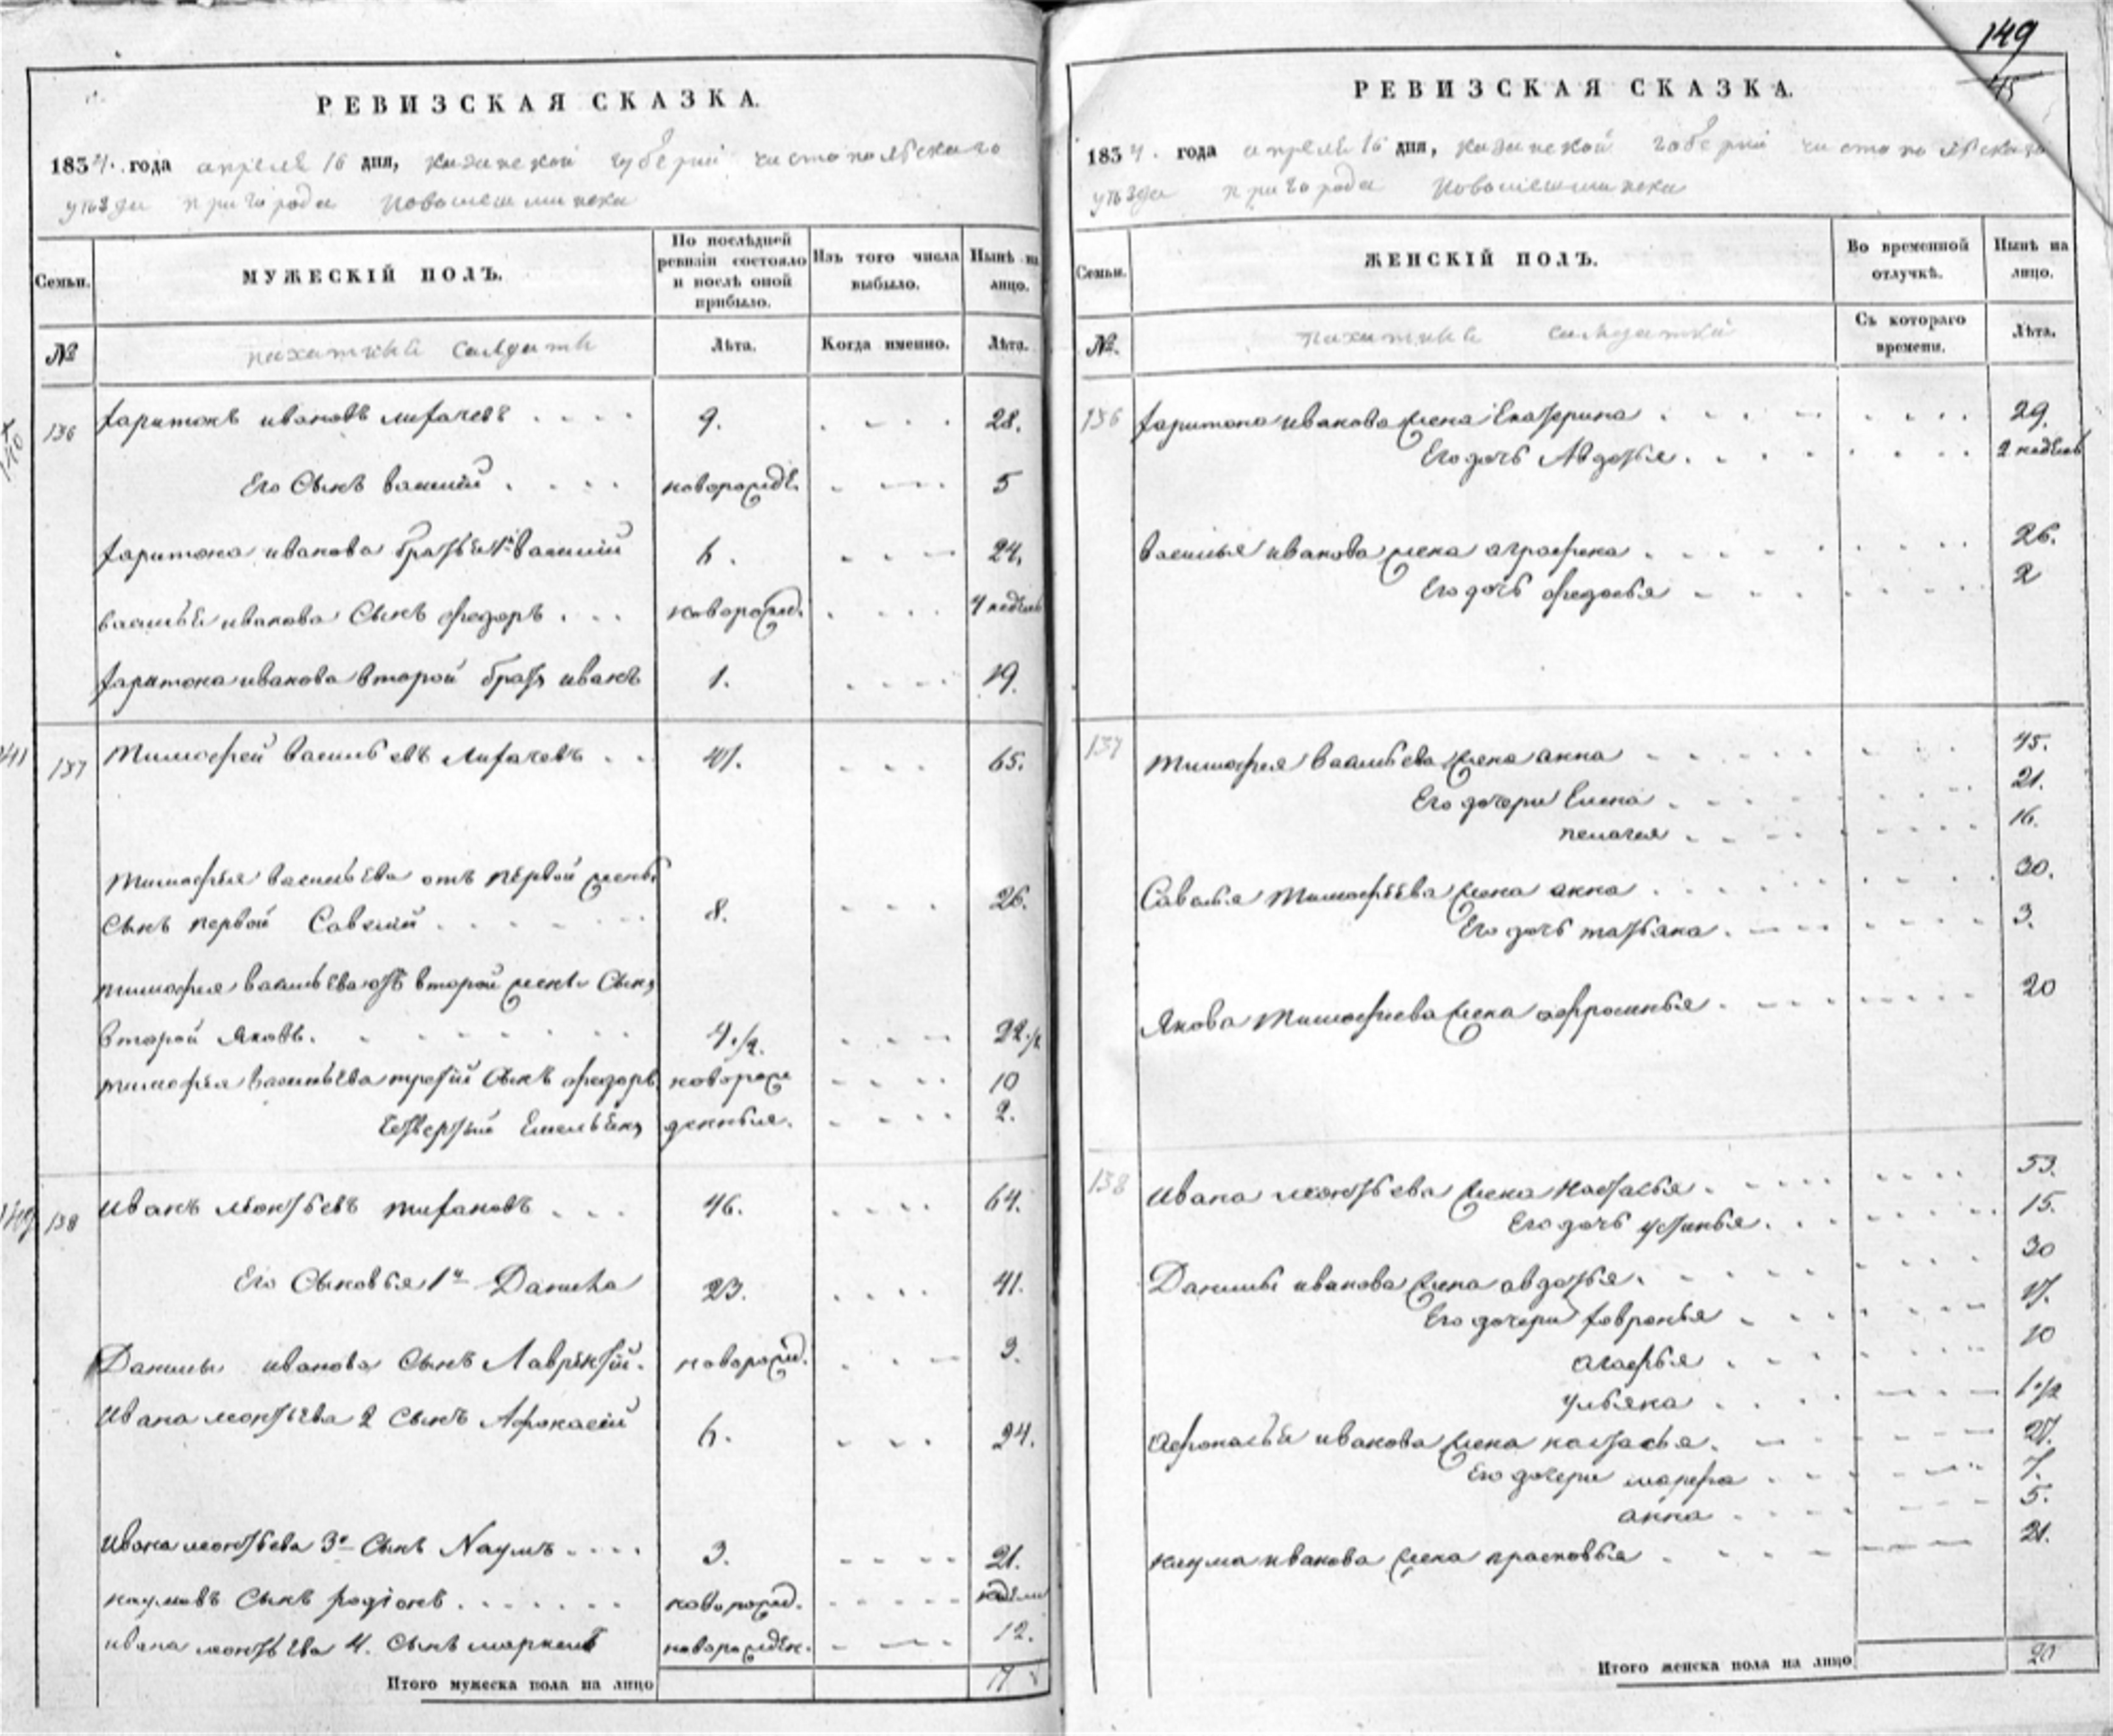 149
45
РЕВИЗСКАЯ СКАЗКА.
1834. года апреля 16 дня, казанской губерніи чистопольскаго
уѣзда пригорода новошешминска
Семьи.
МУЖЕСКІЙ ПОЛЪ.
По послѣдней ревизіи состояло и послѣ оной прибыло.
Изъ того числа выбыло.
Нынѣ на лицо.
№
пахатныи салдаты
Лѣта.
Когда именно.
Лѣта.
136 Харитонъ ивановъ лихачевъ . . . . 9. 28.
Его Сынъ василий . . . . новорожде. 5
Харитона иванова братья 1й василий 6. 24.
василья иванова Сынъ федоръ . . . новорожд. 4 недель
Харитона иванова второй братъ иванъ 1. 19.
141 137 Тимофей васильевъ Лихачевъ . . 47. 65.
тимофея васильева отъ первой жены
сынъ первой Савелий 8. 26.
тимофея васильева отъ второй жены Сынъ
второй яковъ. 4.1/2. 22.1/2
тимофея васильева третий Сынъ федоръ новорож 10
Четвертый Емельянъ денныя. 2.
138 иванъ леонтьевъ тихановъ . . . 46. 64.
Его Сыновья 1й Данила 23. 41.
Данилы иванова сынъ Лаврентий. новорожд. 3.
ивана леонтьева 2 Сынъ Афонасий 6. 24.
ивана леонтьева 3й Сынъ Наумъ . . . . 3. 21.
наумовъ Сынъ родіонъ . . . . . . . новорожд. недели
ивана леонтьева 4. Сынъ маркелъ новорожден. 12.
Итого мужеска пола на лицо 17
РЕВИЗСКАЯ СКАЗКА.
1834. года апреля 16 дня, казанской губерніи чистопольскаго
уѣзда пригорода новошешминска
Семьи.
ЖЕНСКІЙ ПОЛЪ.
Во временной отлучкѣ.
Нынѣ на лицо.
№.
пахатныи салдатки
Съ котораго времени.
Лѣта.
136 Харитона иванова жена Екатерина 29.
Его дочь Авдотья. 2 недель
василья иванова жена аграфена 26.
Его дочь федосья 2
137 тимофея васильева жена анна 45.
Его дочери Елена 21.
пелагея 16.
Савелья тимофеева жена анна 30.
Его дочь татьяна. 3.
Якова тимофиева жена афросинья. 20
138 ивана леонтьева жена настасья. 53.
Его дочь устинья. 15.
Данилы иванова жена авдотья. 30
Его дочери хавронья 17.
агафья 10
ульяна 1.1/2
афонасья иванова жена настасья. 27.
Его дочери марфа 7.
анна 5.
наума иванова жена прасковья 21.
Итого женска пола на лицо 20